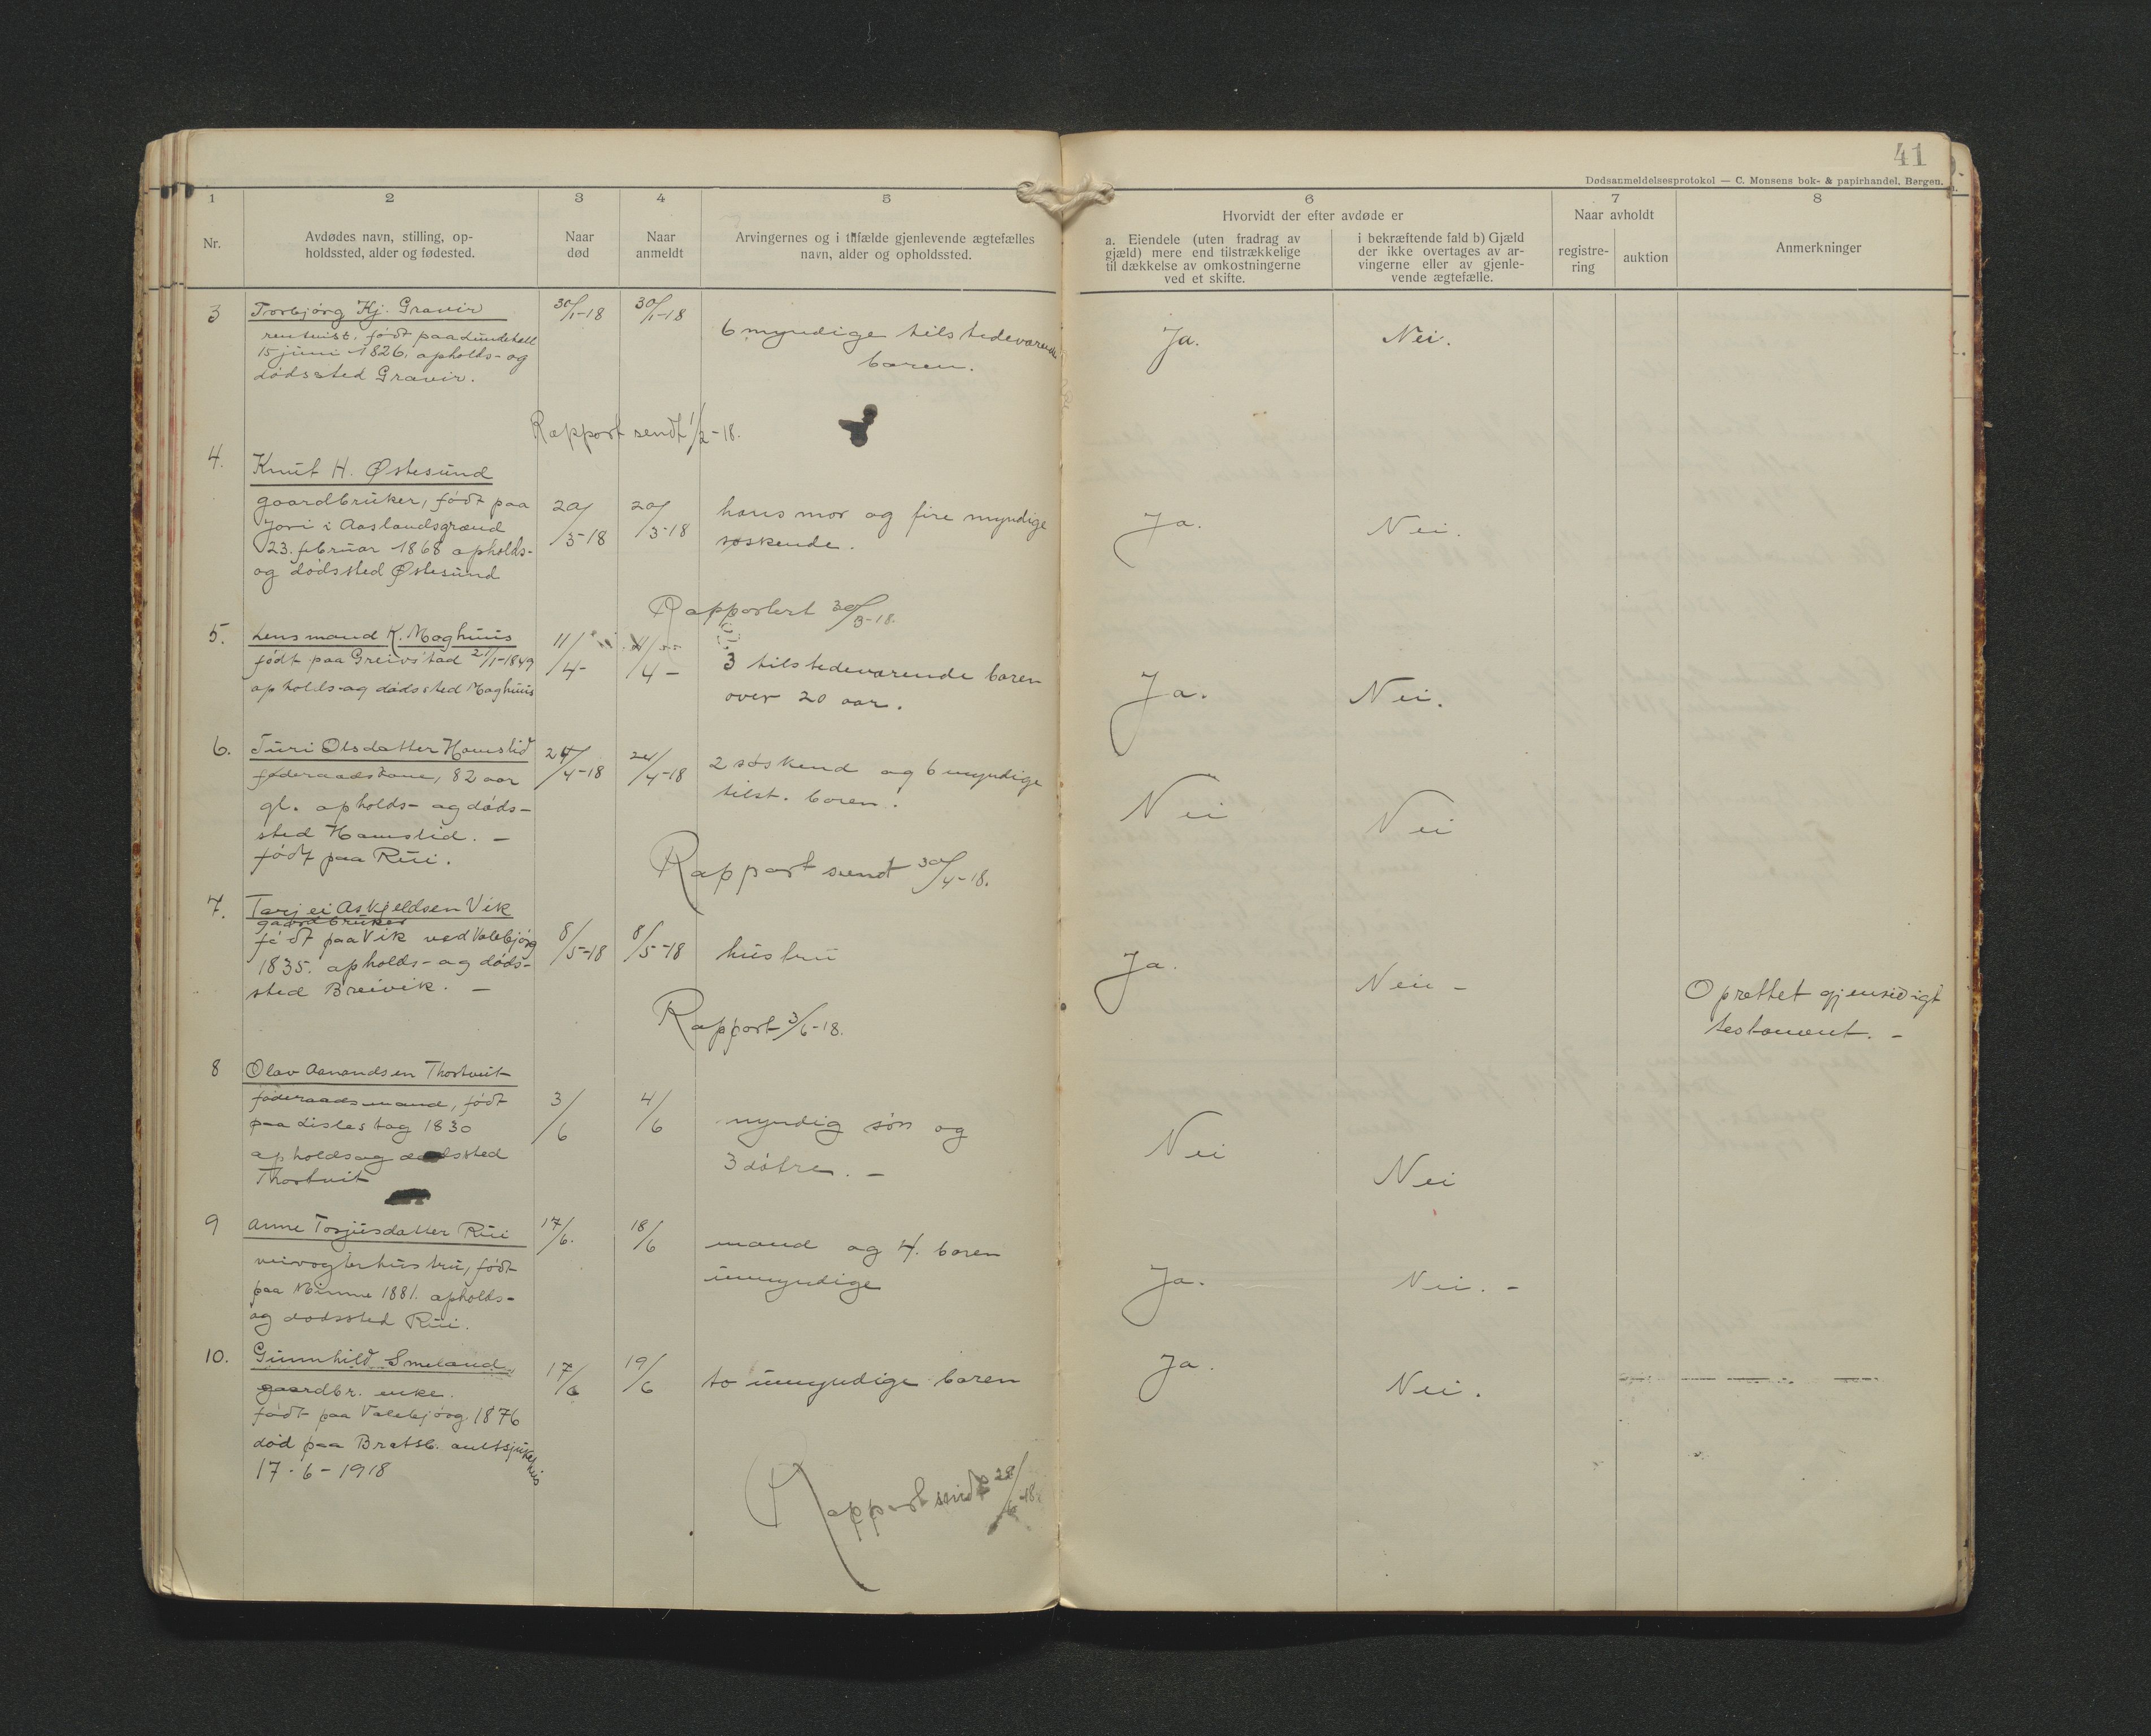 41
Dødsanmeldelsesprotokol — C. Monsens bok- & papirhandel, Bergen.
1 2 3 4 5 6 7 8
Nr.
Avdødes navn, stilling, op-
holdssted, alder og fødested.
Naar
død
Naar
anmeldt
Arvingernes og i tilfælde gjenlevende ægtefælles
navn, alder og opholdssted.
Hvorvidt der efter avdøde er
a. Eiendele (uten fradrag av
gjæld) mere end tilstrækkelige
til dækkelse av omkostningerne
ved et skifte.
i bekræftende fald b) Gjæld
der ikke overtages av ar-
vingerne eller av gjenle-
vende ægtefælle.
Naar avholdt
registre-
ring
auktion
Anmerkninger
3 Torbjørg Kj. Gravir 30/1-18 30/1-18
rentnist, født paa Lundekall
15 juni 1826. opholds- og
dødssted Gravir.
6 myndige tilstedeværende
boren.
Ja. Nei.
Rapport sendt 1/2-18.
4. Knut H. Østesund
gaardbruker, født paa
Jori i Aaslandsgrænd
23. februar 1868 opholds-
og dødssted Østesund
20/3-18 20/3-18
hans mor og fire myndige
søskende.
Ja. Nei.
Rapportert 30/3-18.
5. Lensmand K. Moghuus
født paa Greivstad 21/1-1849
opholds- og dødssted Moghuus
11/4- 11/4-
3 tilstedeværende boren
over 20 aar.
Ja. Nei.
6. Turi Olsdatter Homslid
føderaadskone, 82 aar
gl. opholds- og døds-
sted Hamslid. -
født paa Rui.
24/4-18 24/4-18
2 søskend og 6 myndige
tilst. boren.
Nei Nei
Rapport sendt 30/4-18.
7. Tarjei Askjeldsen Vik
gaardbruker
født paa Vik ved Valebjørg
1835. opholds- og døds-
sted Breivik. -
8/5-18 8/5-18
hustru
Ja. Nei -
Oprettet gjensidigt
testament. -
Rapport 3/6-18.
8 Olav Aanondsen Thortveit
føderaadsmand, født
paa Lislestog 1830
opholds og dødssted
Thortveit
3/6 4/6
myndig søn og
3 døtre. -
Nei Nei
9 Anne Torjusdatter Rui
veivogterhustru, født
paa Minne 1881. opholds-
og dødssted Rui.
17/6. 18/6
mand og 4. boren
umyndige
Ja. Nei. -
10. Gunnhild Smeland
gaardbr. enke.
født paa Valebjørg 1876
død paa Bratsb. amtsjukehus
17-6-1918
17/6 19/6
to umyndige boren
Ja. Nei.
Rapport sendt 28/6-18.